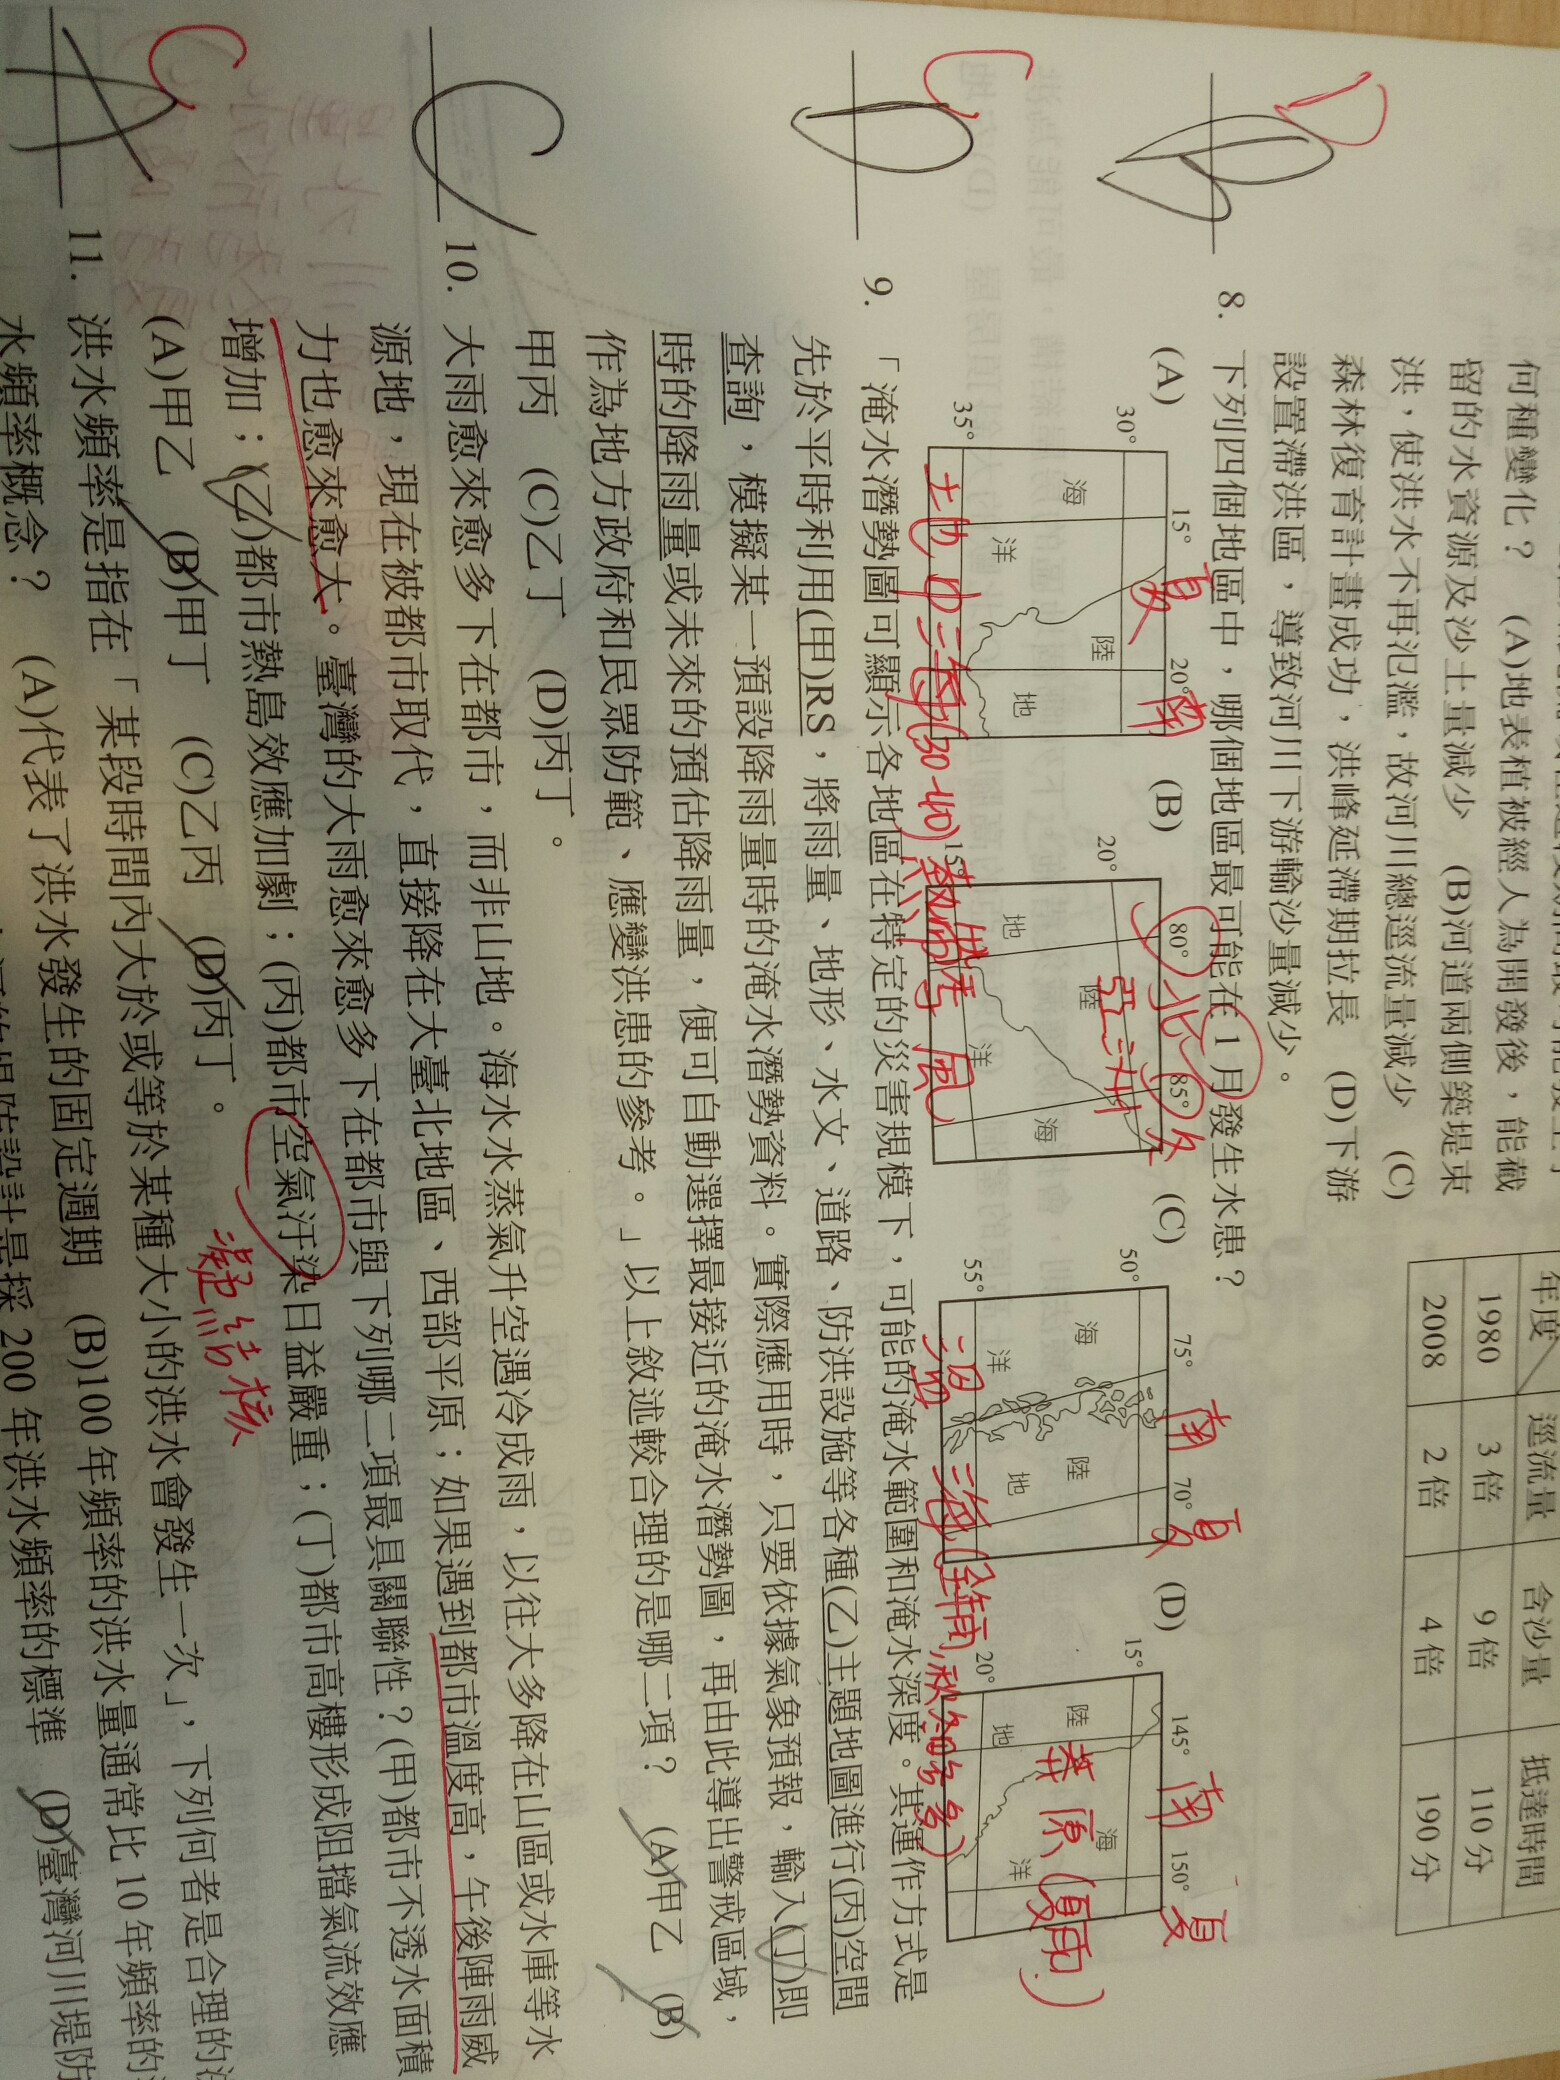 何種變化？ (A)地表植被經人為開發後，能截
留的水資源及沙土量減少 (B)河道兩側築堤束
洪，使洪水不再氾濫，故河川總逕流量減少 (C)
森林復育計畫成功，洪峰延滯期拉長 (D)下游
設置滯洪區，導致河川下游輸沙量減少。
年度 逕流量 含沙量 抵達時間
1980 3倍 9倍 110分
2008 2倍 4倍 190分
8. 下列四個地區中，哪個地區最可能在1月發生水患？
(A) (B) (C) (D)
15° 20° 80° 85° 75° 70° 145° 150°
夏 南 北 冬 南 夏 南 夏
30° 20° 50° 15°
海 洋 陸 地
地 陸 洋 海
亞洲
海 洋 陸 地
陸 地 海 洋
莽原(夏雨)
35° 15° 55° 20°
地中海(30-40) 熱帶季風 溫海(全年雨,秋冬多)
9. 「淹水潛勢圖可顯示各地區在特定的災害規模下，可能的淹水範圍和淹水深度。其運作方式是
先於平時利用(甲)RS，將雨量、地形、水文、道路、防洪設施等各種(乙)主題地圖進行(丙)空間
查詢，模擬某一預設降雨量時的淹水潛勢資料。實際應用時，只要依據氣象預報，輸入(丁)即
時的降雨量或未來的預估降雨量，便可自動選擇最接近的淹水潛勢圖，再由此導出警戒區域，
作為地方政府和民眾防範、應變洪患的參考。」以上敘述較合理的是哪二項？ (A)甲乙 (B)
甲丙 (C)乙丁 (D)丙丁。
C
10. 大雨愈來愈多下在都市，而非山地。海水水蒸氣升空遇冷成雨，以往大多降在山區或水庫等水
源地，現在被都市取代，直接降在大臺北地區、西部平原；如果遇到都市溫度高，午後陣雨威
力也愈來愈大。臺灣的大雨愈來愈多下在都市與下列哪二項最具關聯性？(甲)都市不透水面積
增加；(乙)都市熱島效應加劇；(丙)都市空氣汙染日益嚴重；(丁)都市高樓形成阻擋氣流效應
凝結核
(A)甲乙 (B)甲丁 (C)乙丙 (D)丙丁。
C
11. 洪水頻率是指在「某段時間內大於或等於某種大小的洪水會發生一次」，下列何者是合理的
水頻率概念？ (A)代表了洪水發生的固定週期 (B)100年頻率的洪水量通常比10年頻率的
堤防設計是採200年洪水頻率的標準 (D)臺灣河川堤防
A
C